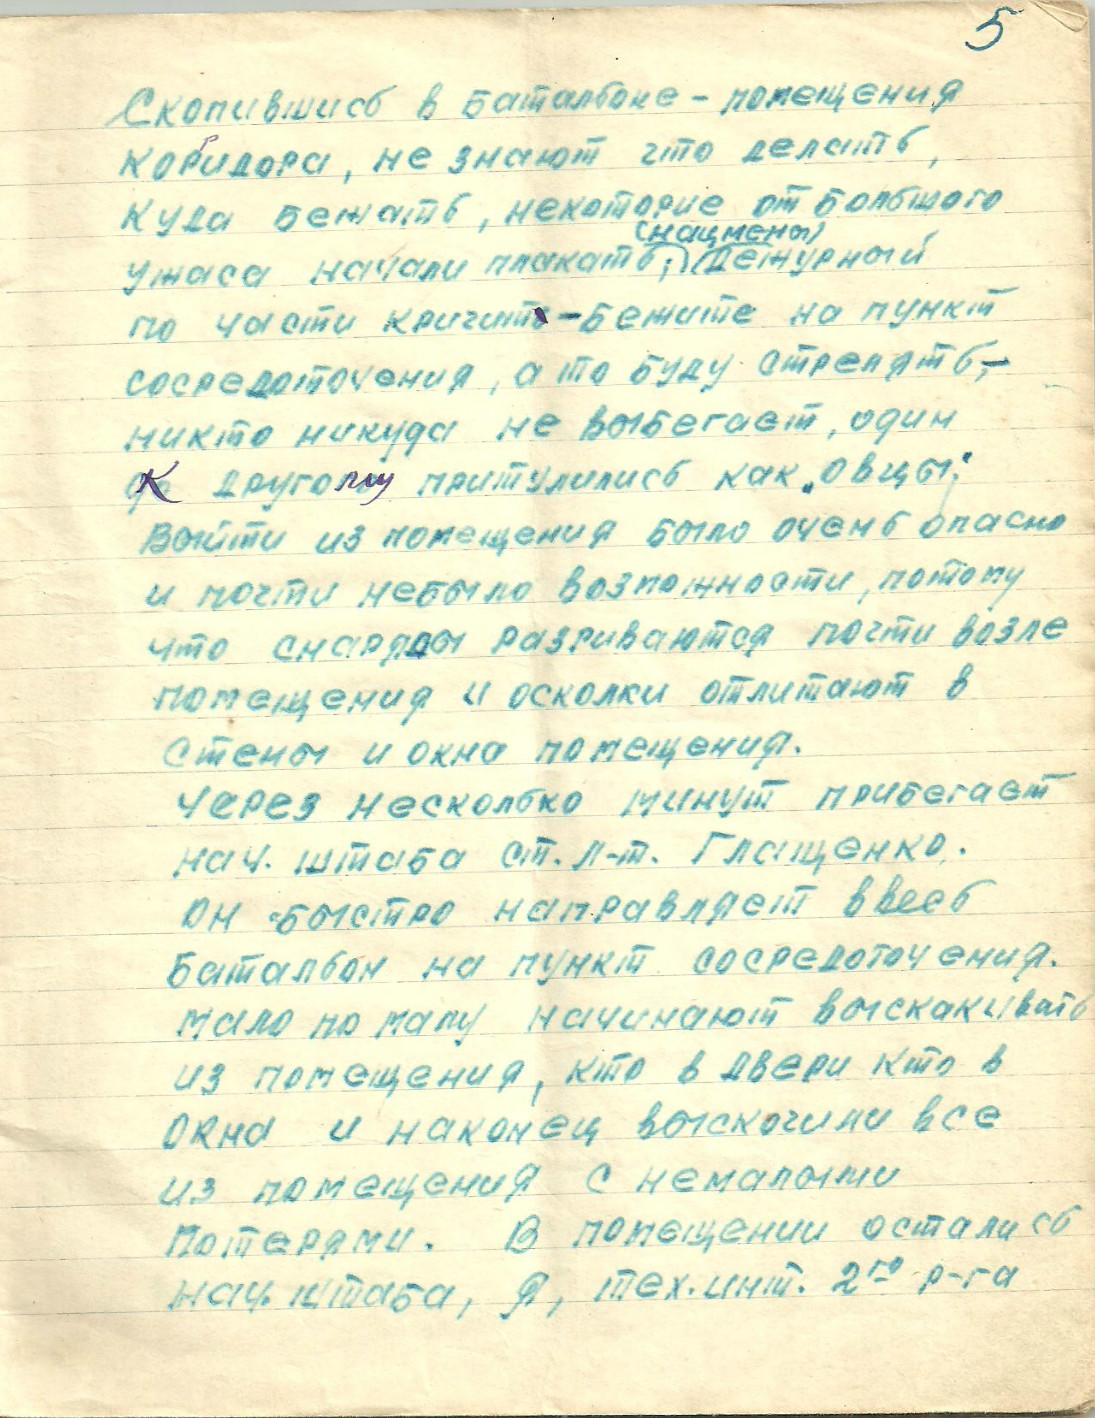 5
Скопившись в батальоне - помещения
коридора, не знают что делать,
куда бежать, некоторие от большого
(нацмены)
ужаса начали плакать; Дежурный
по части кричит - бежите на пункт
сосредоточения, а то буду стрелять, -
никто никуда не выбегает, один
к другому притулились как „овцы;"
Выйти из помещения было очень опасно
и почти небыло возможности, потому
что снаряды разриваются почти возле
помещения и осколки отлитают в
стены и окна помещения.
Через несколько минут прибегает
нач. штаба ст. л-т. Глащенко.
Он быстро направляет ввесь
баталбон на пункт сосредоточения.
Мало по малу начинают выскакивать
из помещения, кто в двери кто в
окна и наконец выскочили все
из помещения с немалыми
потерями. В помещении остались
нач. штаба, я, тех. инт. 2го р-га